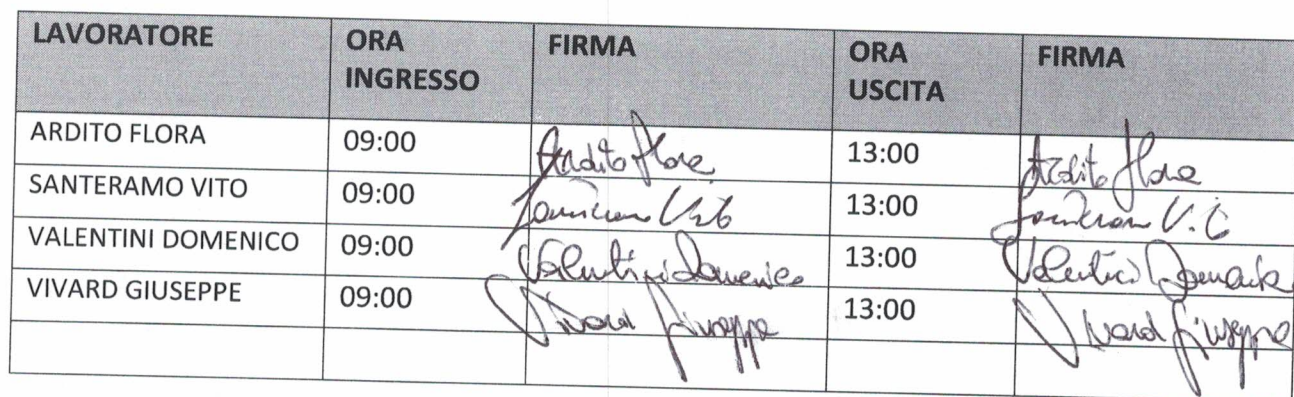 LAVORATORE ORA INGRESSO FIRMA ORA USCITA FIRMA
ARDITO FLORA 09:00 Ardito Flora 13:00 Ardito Flora
SANTERAMO VITO 09:00 Vito 13:00
VALENTINI DOMENICO 09:00 Valentini Domenico 13:00 Valentini Domenico
VIVARD GIUSEPPE 09:00 Vivard Giuseppe 13:00 Vivard Giuseppe